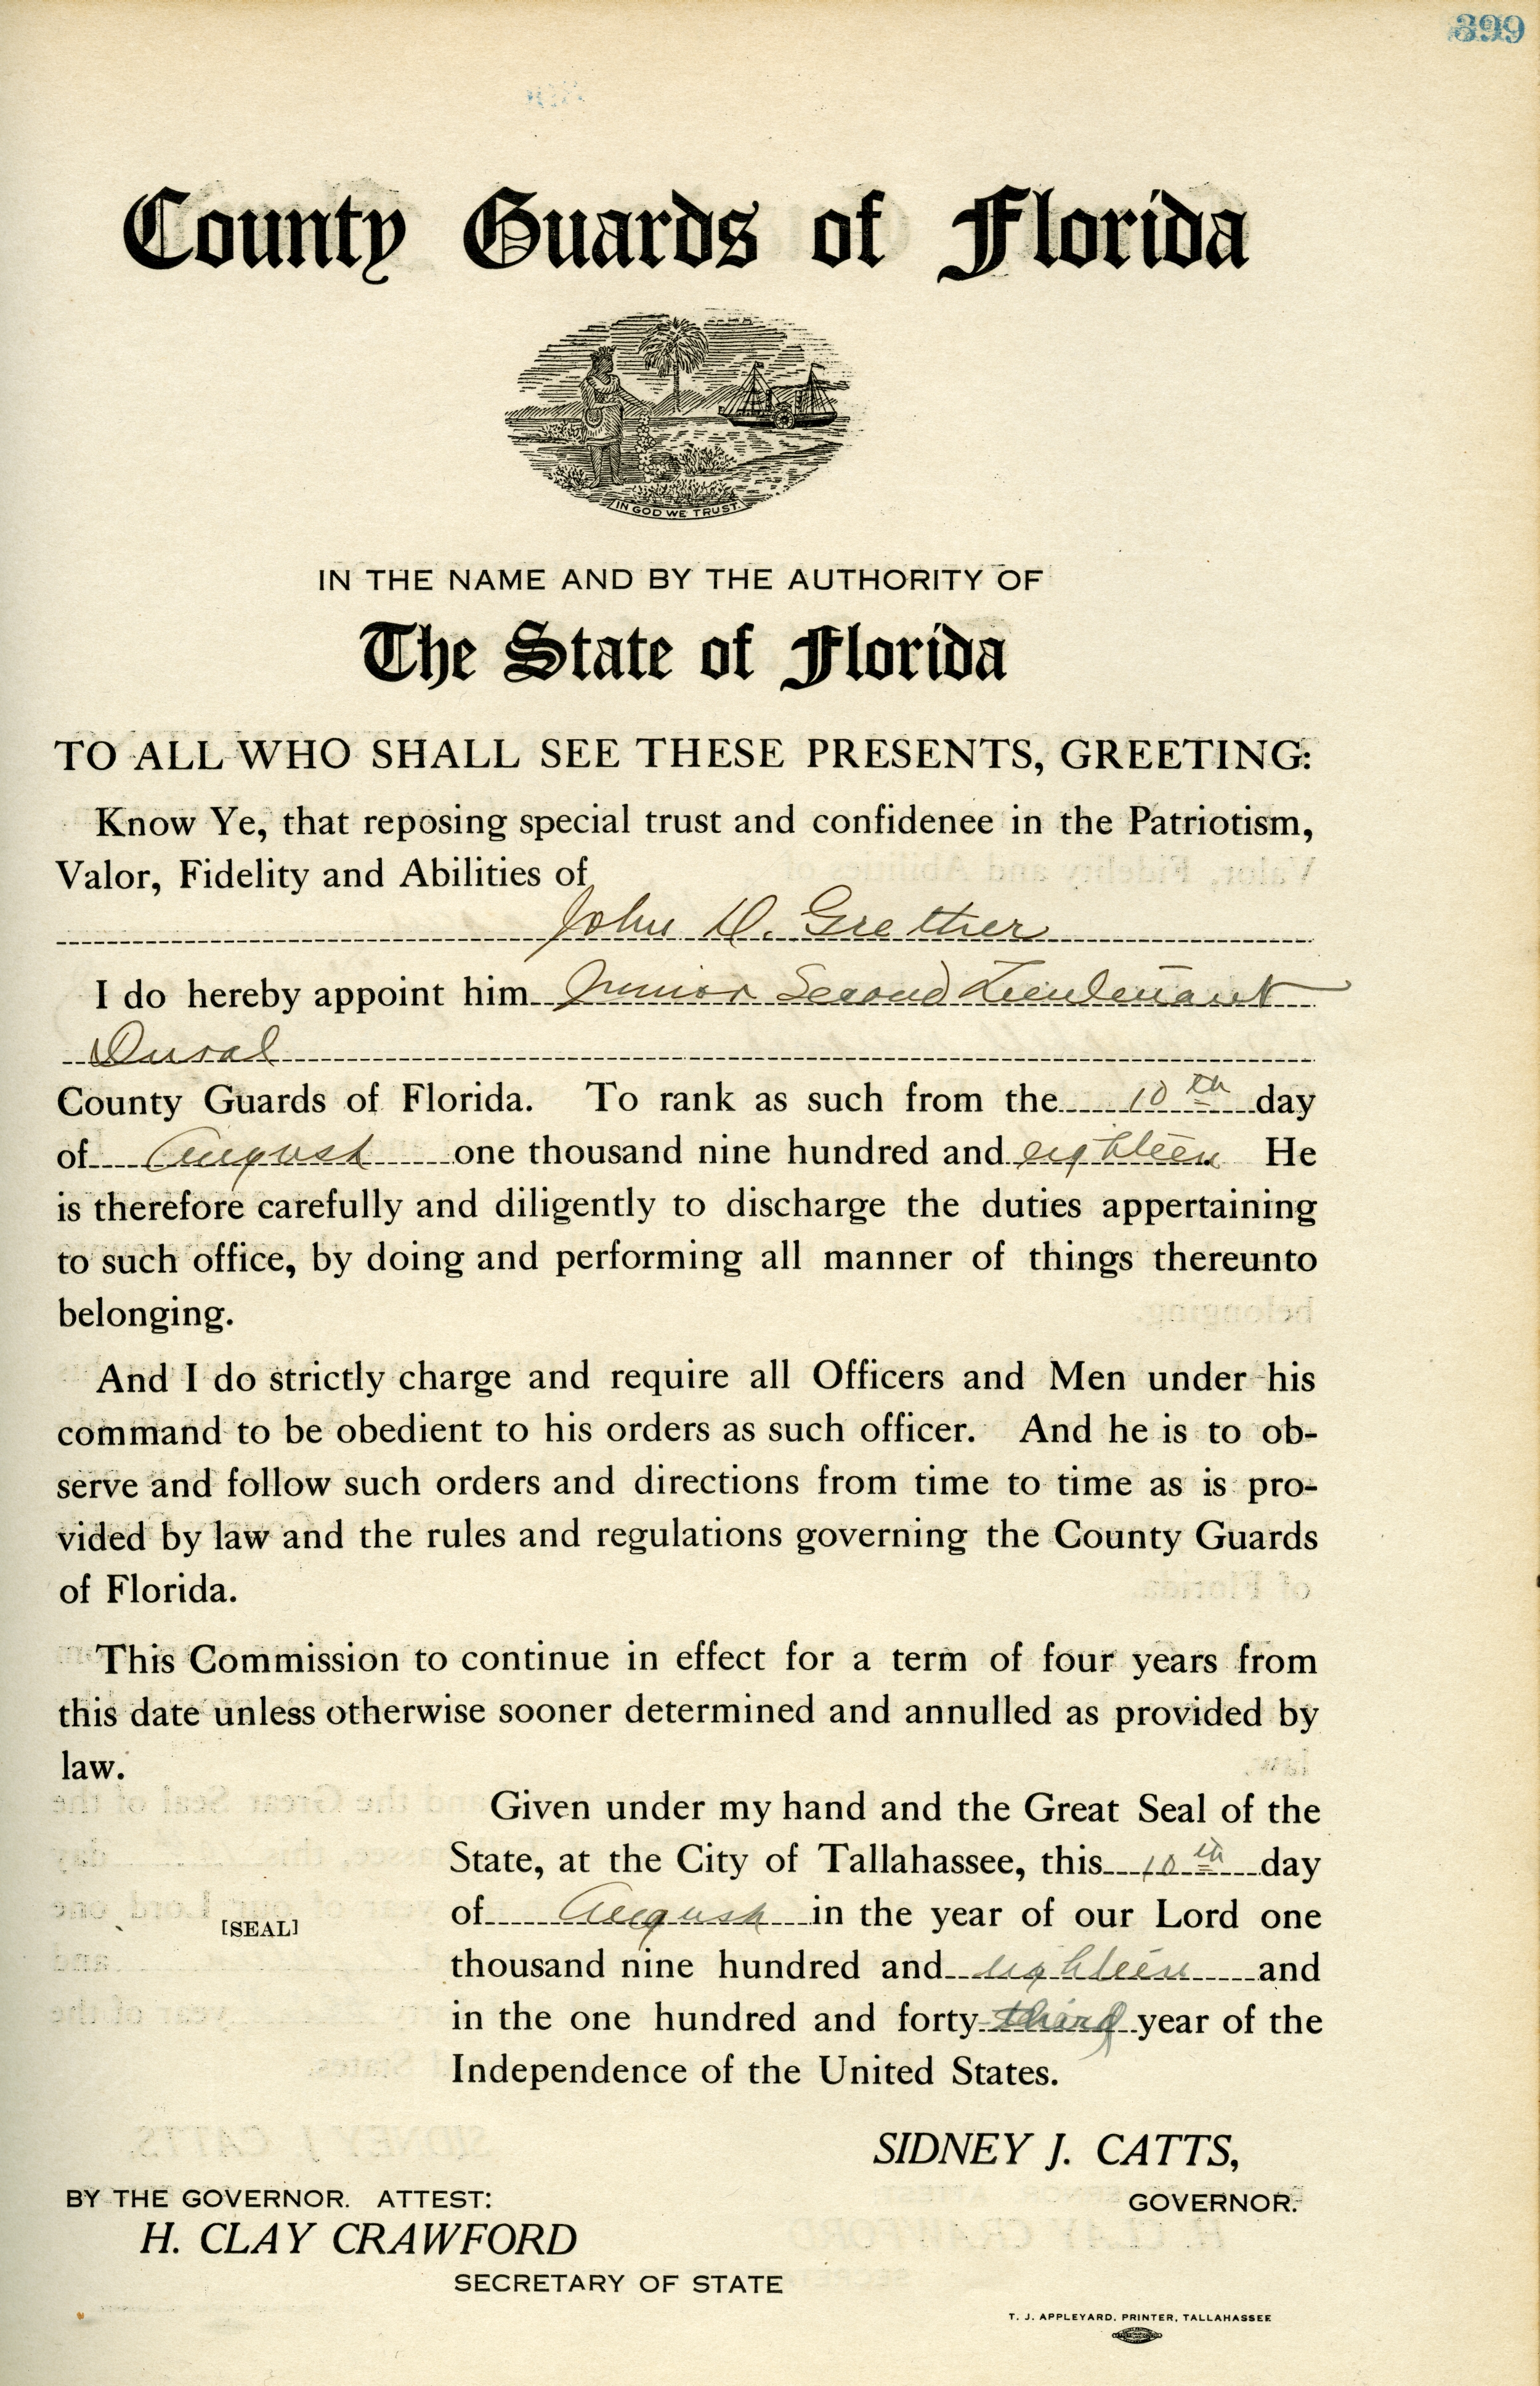 399
County Guards of Florida
IN GOD WE TRUST.
IN THE NAME AND BY THE AUTHORITY OF
The State of Florida
TO ALL WHO SHALL SEE THESE PRESENTS, GREETING:
Know Ye, that reposing special trust and confidenee in the Patriotism,
Valor, Fidelity and Abilities of
John D. Grether
I do hereby appoint him Junior Second Lieutenant
Duval
County Guards of Florida. To rank as such from the 10th day
of August one thousand nine hundred and eighteen He
is therefore carefully and diligently to discharge the duties appertaining
to such office, by doing and performing all manner of things thereunto
belonging.
And I do strictly charge and require all Officers and Men under his
command to be obedient to his orders as such officer. And he is to ob-
serve and follow such orders and directions from time to time as is pro-
vided by law and the rules and regulations governing the County Guards
of Florida.
This Commission to continue in effect for a term of four years from
this date unless otherwise sooner determined and annulled as provided by
law.
Given under my hand and the Great Seal of the
State, at the City of Tallahassee, this 10th day
of August in the year of our Lord one
[SEAL]
thousand nine hundred and eighteen and
in the one hundred and forty third year of the
Independence of the United States.
SIDNEY J. CATTS,
GOVERNOR.
BY THE GOVERNOR. ATTEST:
H. CLAY CRAWFORD
SECRETARY OF STATE
T. J. APPLEYARD, PRINTER, TALLAHASSEE